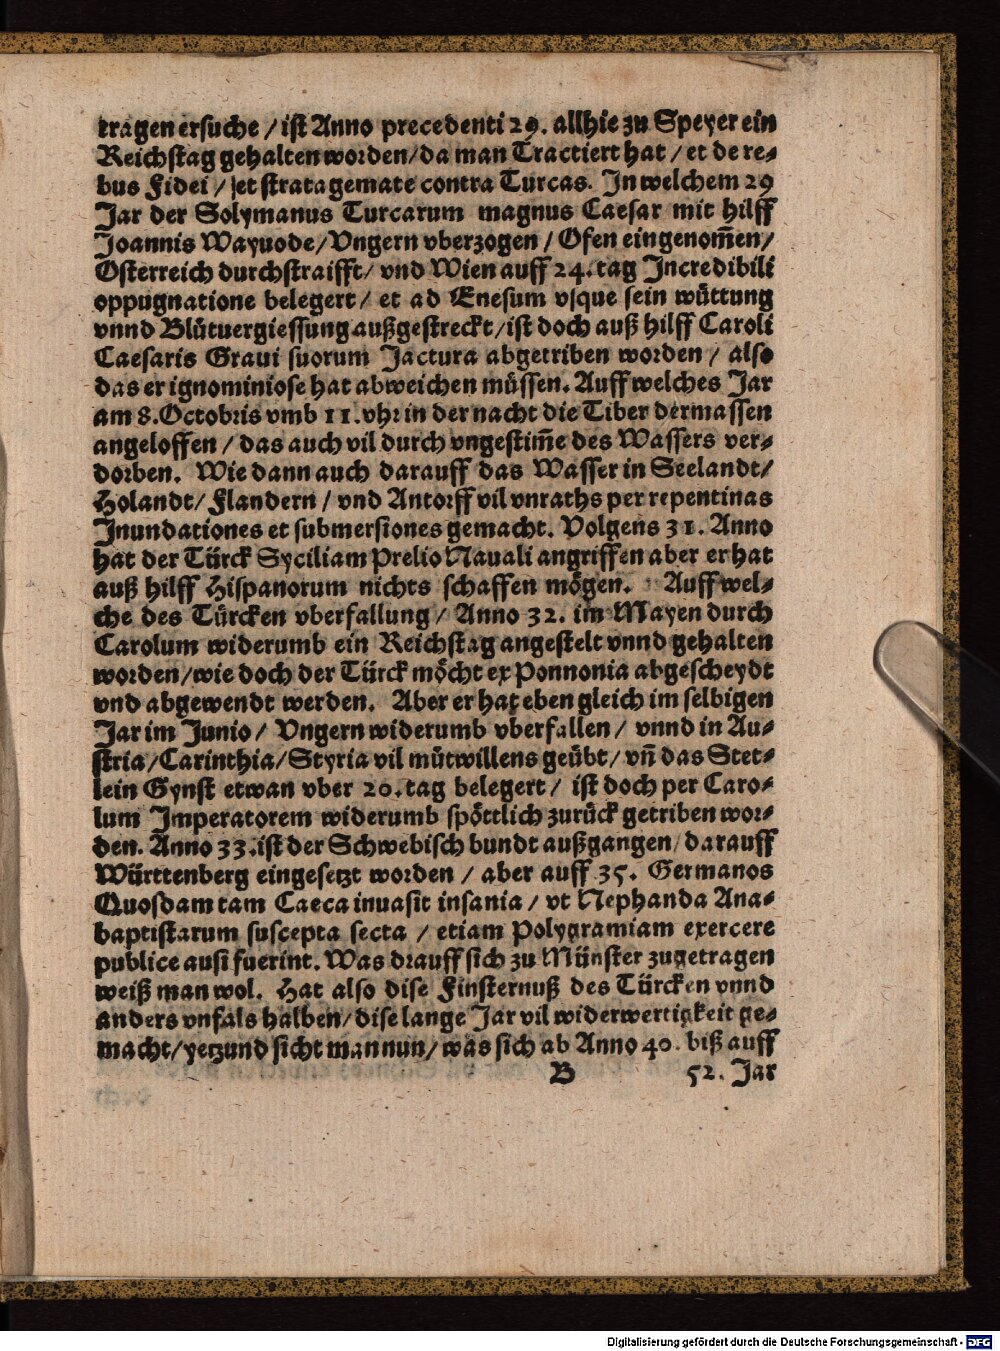 tragen ersuche / ist Anno precedenti 29. allhie zu Speyer ein
Reichstag gehalten worden / da man Tractiert hat / et de re-
bus Fidei / et stratagemate contra Turcas. In welchem 29
Jar der Solymanus Turcarum magnus Caesar mit hilff
Joannis Wayuode / Vngern vberzogen / Ofen eingenom̃en /
Osterreich durchstraifft / vnd Wien auff 24. tag Incredibili
oppugnatione belegert / et ad Enesum vsque sein wüttung
vnnd Blůtuergiessung außgestreckt / ist doch auß hilff Caroli
Caesaris Graui suorum Jactura abgetriben worden / also
das er ignominiose hat abweichen müssen. Auff welches Jar
am 8. Octobris vmb 11. vhr in der nacht die Tiber dermassen
angeloffen / das auch vil durch vngestim̃e des Wassers ver-
dorben. Wie dann auch darauff das Wasser in Seelandt /
Holandt / Flandern / vnd Antorff vil vnraths per repentinas
Inundationes et submersiones gemacht. Volgens 31. Anno
hat der Türck Syciliam Prelio Nauali angriffen aber er hat
auß hilff Hispanorum nichts schaffen mögen. Auff wel-
che des Türcken vberfallung / Anno 32. im Mayen durch
Carolum widerumb ein Reichstag angestelt vnnd gehalten
worden / wie doch der Türck möcht ex Ponnonia abgescheydt
vnd abgewendt werden. Aber er hat eben gleich im selbigen
Jar im Junio / Vngern widerumb vberfallen / vnnd in Au-
stria / Carinthia / Styria vil můtwillens geübt / vñ das Stet-
lein Gynst etwan vber 20. tag belegert / ist doch per Caro-
lum Imperatorem widerumb spöttlich zurück getriben wor-
den. Anno 33. ist der Schwebisch bundt außgangen / darauff
Württenberg eingesetzt worden / aber auff 35. Germanos
Quosdam tam Caeca inuasit insania / vt Nephanda Ana-
baptistarum suscepta secta / etiam Polygramiam exercere
publice ausi fuerint. Was drauff sich zu Münster zugetragen
weiß man wol. Hat also dise Finsternuß des Türcken vnnd
anders vnfals halben / dise lange Jar vil widerwertigkeit ge-
macht / yetzund sicht man nun / was sich ab Anno 40. biß auff
B 52. Jar
Digitalisierung gefördert durch die Deutsche Forschungsgemeinschaft - DFG